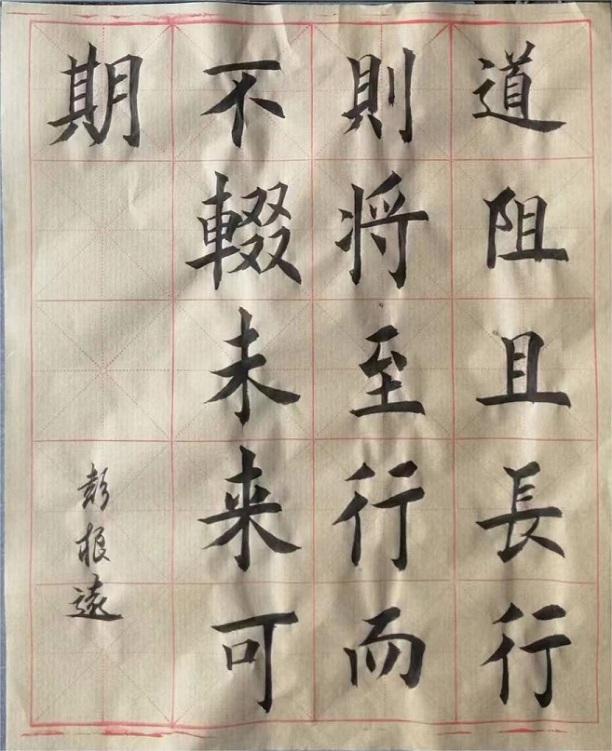 道阻且長行
則将至行而
不輟未来可
期
彭根遠